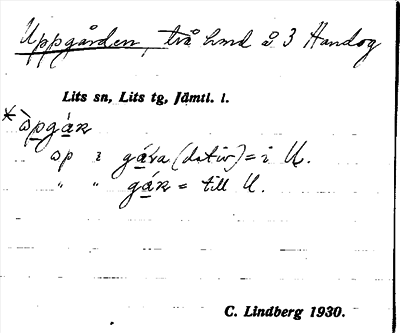 Uppgården, två hmd å 3 Handog
Lits sn, Lits tg, Jämtl. l.
*òpgáʀ
òp i gáva (dativ) = i U.
" " gáʀ = till U.
C. Lindberg 1930.